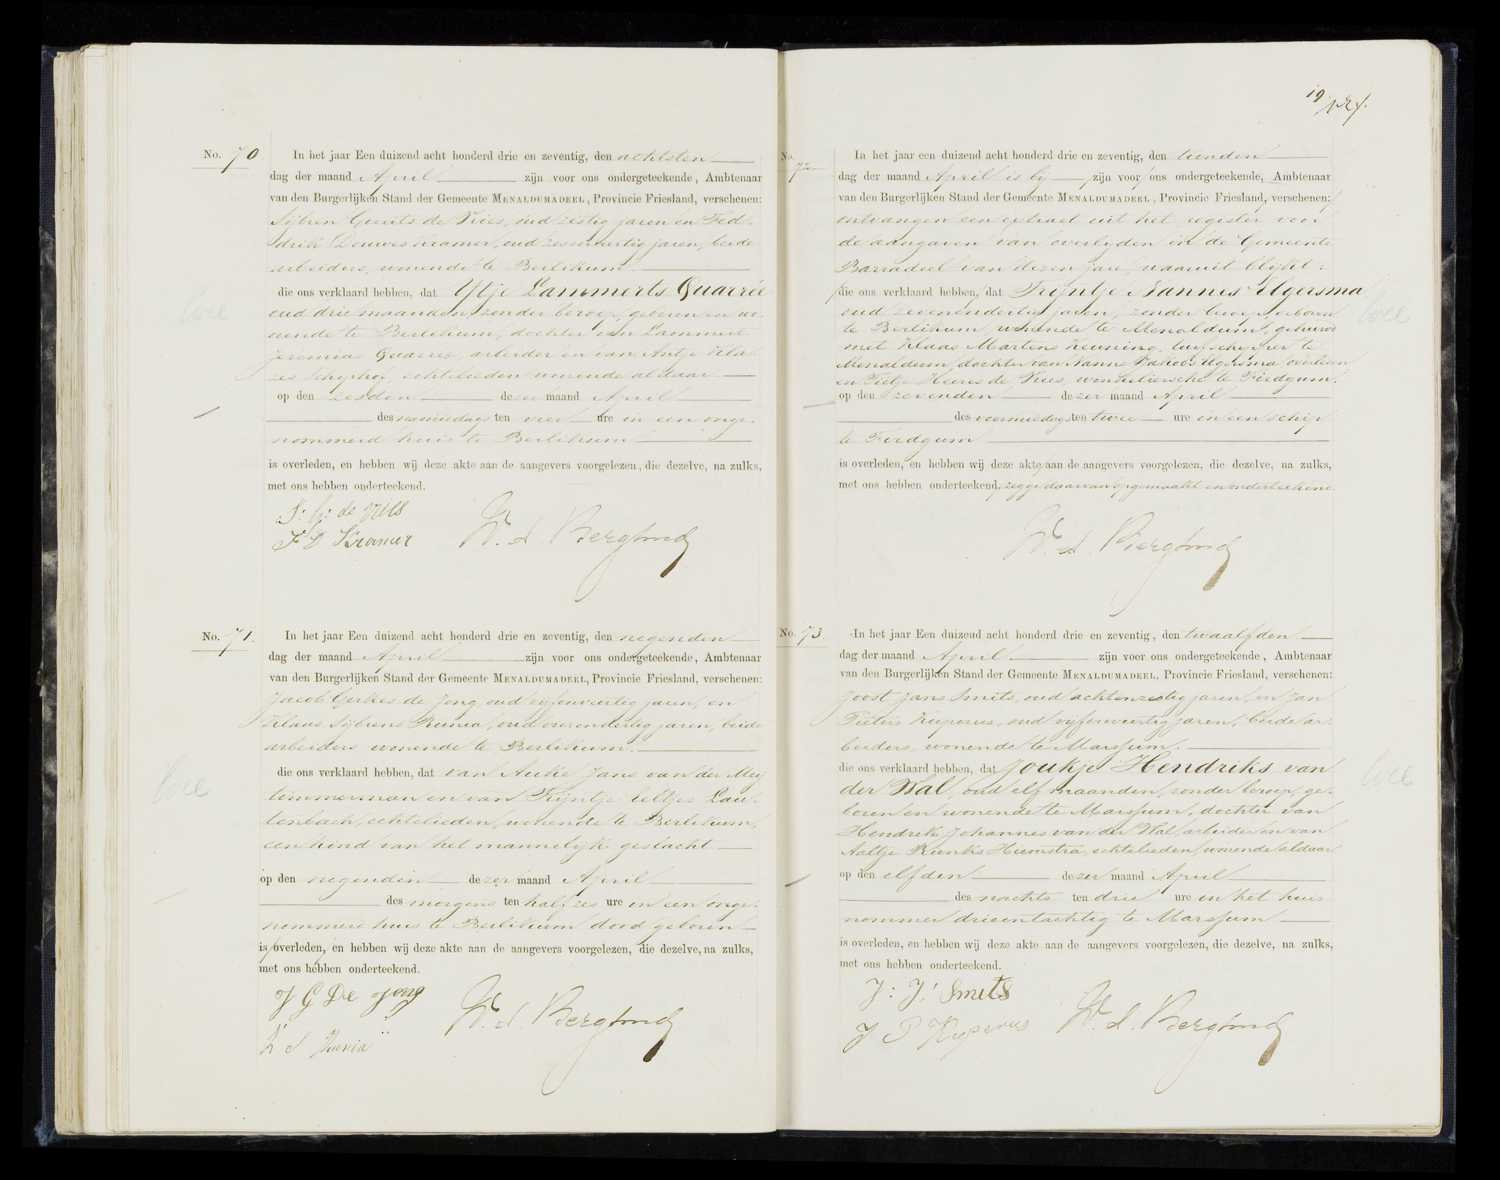 19
No. 70 In het jaar Een duizend acht honderd drie en zeventig, den achtsten
dag der maand April zijn voor ons ondergeteekende, Ambtenaar
van den Burgerlijken Stand der Gemeente MENALDUMADEEL, Provincie Friesland, verschenen:
Sijbren Gerrits de Vries, oud zestig jaren en Fed-
drik Douwes Kramer, oud zesenveertig jaren, beide
arbeiders, wonende te Berlikum.
die ons verklaard hebben, dat Ytje Lammerts Quarrée
oud drie maanden, zonder beroep, geboren en wo-
nende te Berlikum, dochter van Lammert
Jeremias Quarrée, arbeider en van Antje Kla-
zes Schiphof, echtelieden wonende aldaar
op den zesden dezer maand April
des namiddags ten vier ure in een onge-
nommerd huis te Berlikum
is overleden, en hebben wij deze akte aan de aangevers voorgelezen, die dezelve, na zulks,
met ons hebben onderteekend.
S: G: de Vries
F D Kramer
No. 71. In het jaar Een duizend acht honderd drie en zeventig, den negenden
dag der maand April zijn voor ons ondergeteekende, Ambtenaar
van den Burgerlijken Stand der Gemeente MENALDUMADEEL, Provincie Friesland, verschenen:
Jacob Gerbens de Jong, oud vijfenveertig jaren, en
Klaas Sijbrens Runia, oud jaren, beide
arbeiders wonende te Berlikum.
die ons verklaard hebben, dat van Auke Jans van der Meij
timmerman en van Trijntje Eeltjes Lau-
tenbach, echtelieden, wonende te Berlikum,
een kind van het mannelijk geslacht
op den negenden dezer maand April
des morgens ten half zes ure in een onge-
nommerd huis te Berlikum dood geboren
is overleden, en hebben wij deze akte aan de aangevers voorgelezen, die dezelve, na zulks,
met ons hebben onderteekend.
J G De Jong
K S Runia
No. 72 In het jaar een duizend acht honderd drie en zeventig, den tienden
dag der maand April is bij zijn voor ons ondergeteekende, Ambtenaar
van den Burgerlijken Stand der Gemeente MENALDUMADEEL, Provincie Friesland, verschenen:
ontvangen een extract uit het register voor
de aangaven van overlijden in de Gemeente
Barradeel van dezen jare, waaruit blijkt:
die ons verklaard hebben, dat Trijntje Nannes Algersma
oud zevenendertig jaren, zonder beroep, geboren
te Berlikum, wonende te Menaldum, gehuwd
met Klaas Martens Keuning, turfschipper te
Menaldum, dochter van Nanne Algersma, overleden
en Tietje Heeres de Vries, winkeliersche te Firdgum.
op den zevenden dezer maand April
des voormiddags ten twee ure in een schip
te Firdgum
is overleden, en hebben wij deze akte aan de aangevers voorgelezen, die dezelve, na zulks,
met ons hebben onderteekend, zegge daarvan opgemaakt en onderteekend.
No. 73. In het jaar Een duizend acht honderd drie en zeventig, den twaalfden
dag der maand April zijn voor ons ondergeteekende, Ambtenaar
van den Burgerlijken Stand der Gemeente MENALDUMADEEL, Provincie Friesland, verschenen:
Joost Jans Smits, oud achtenzestig jaren, en Jan
Pieters Kuperus, oud vijfenveertig jaren, beide ar-
beiders, wonende te Marssum.
die ons verklaard hebben, dat Joukje Hendriks van
der Wal, oud elf maanden, zonder beroep, ge-
boren en wonende te Marssum, dochter van
Hendrik Johannes van der Wal arbeider en van
Aaltje Rienks Hiemstra, echtelieden, wonende aldaar
op den elfden dezer maand April
des nachts ten drie ure in het huis
nommer drieentachtig te Marssum
is overleden, en hebben wij deze akte aan de aangevers voorgelezen, die dezelve, na zulks,
met ons hebben onderteekend.
J: J: Smits
J P Kuperus